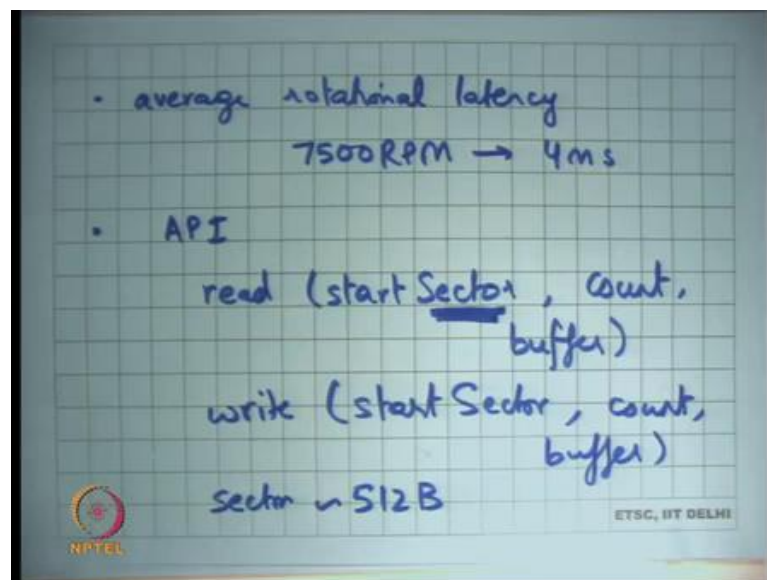 • average rotational latency
7500 RPM → 4ms
• API
read (start Sector, count,
buffer)
write (start Sector, count,
buffer)
sector ~ 512 B
NPTEL
ETSC, IIT DELHI